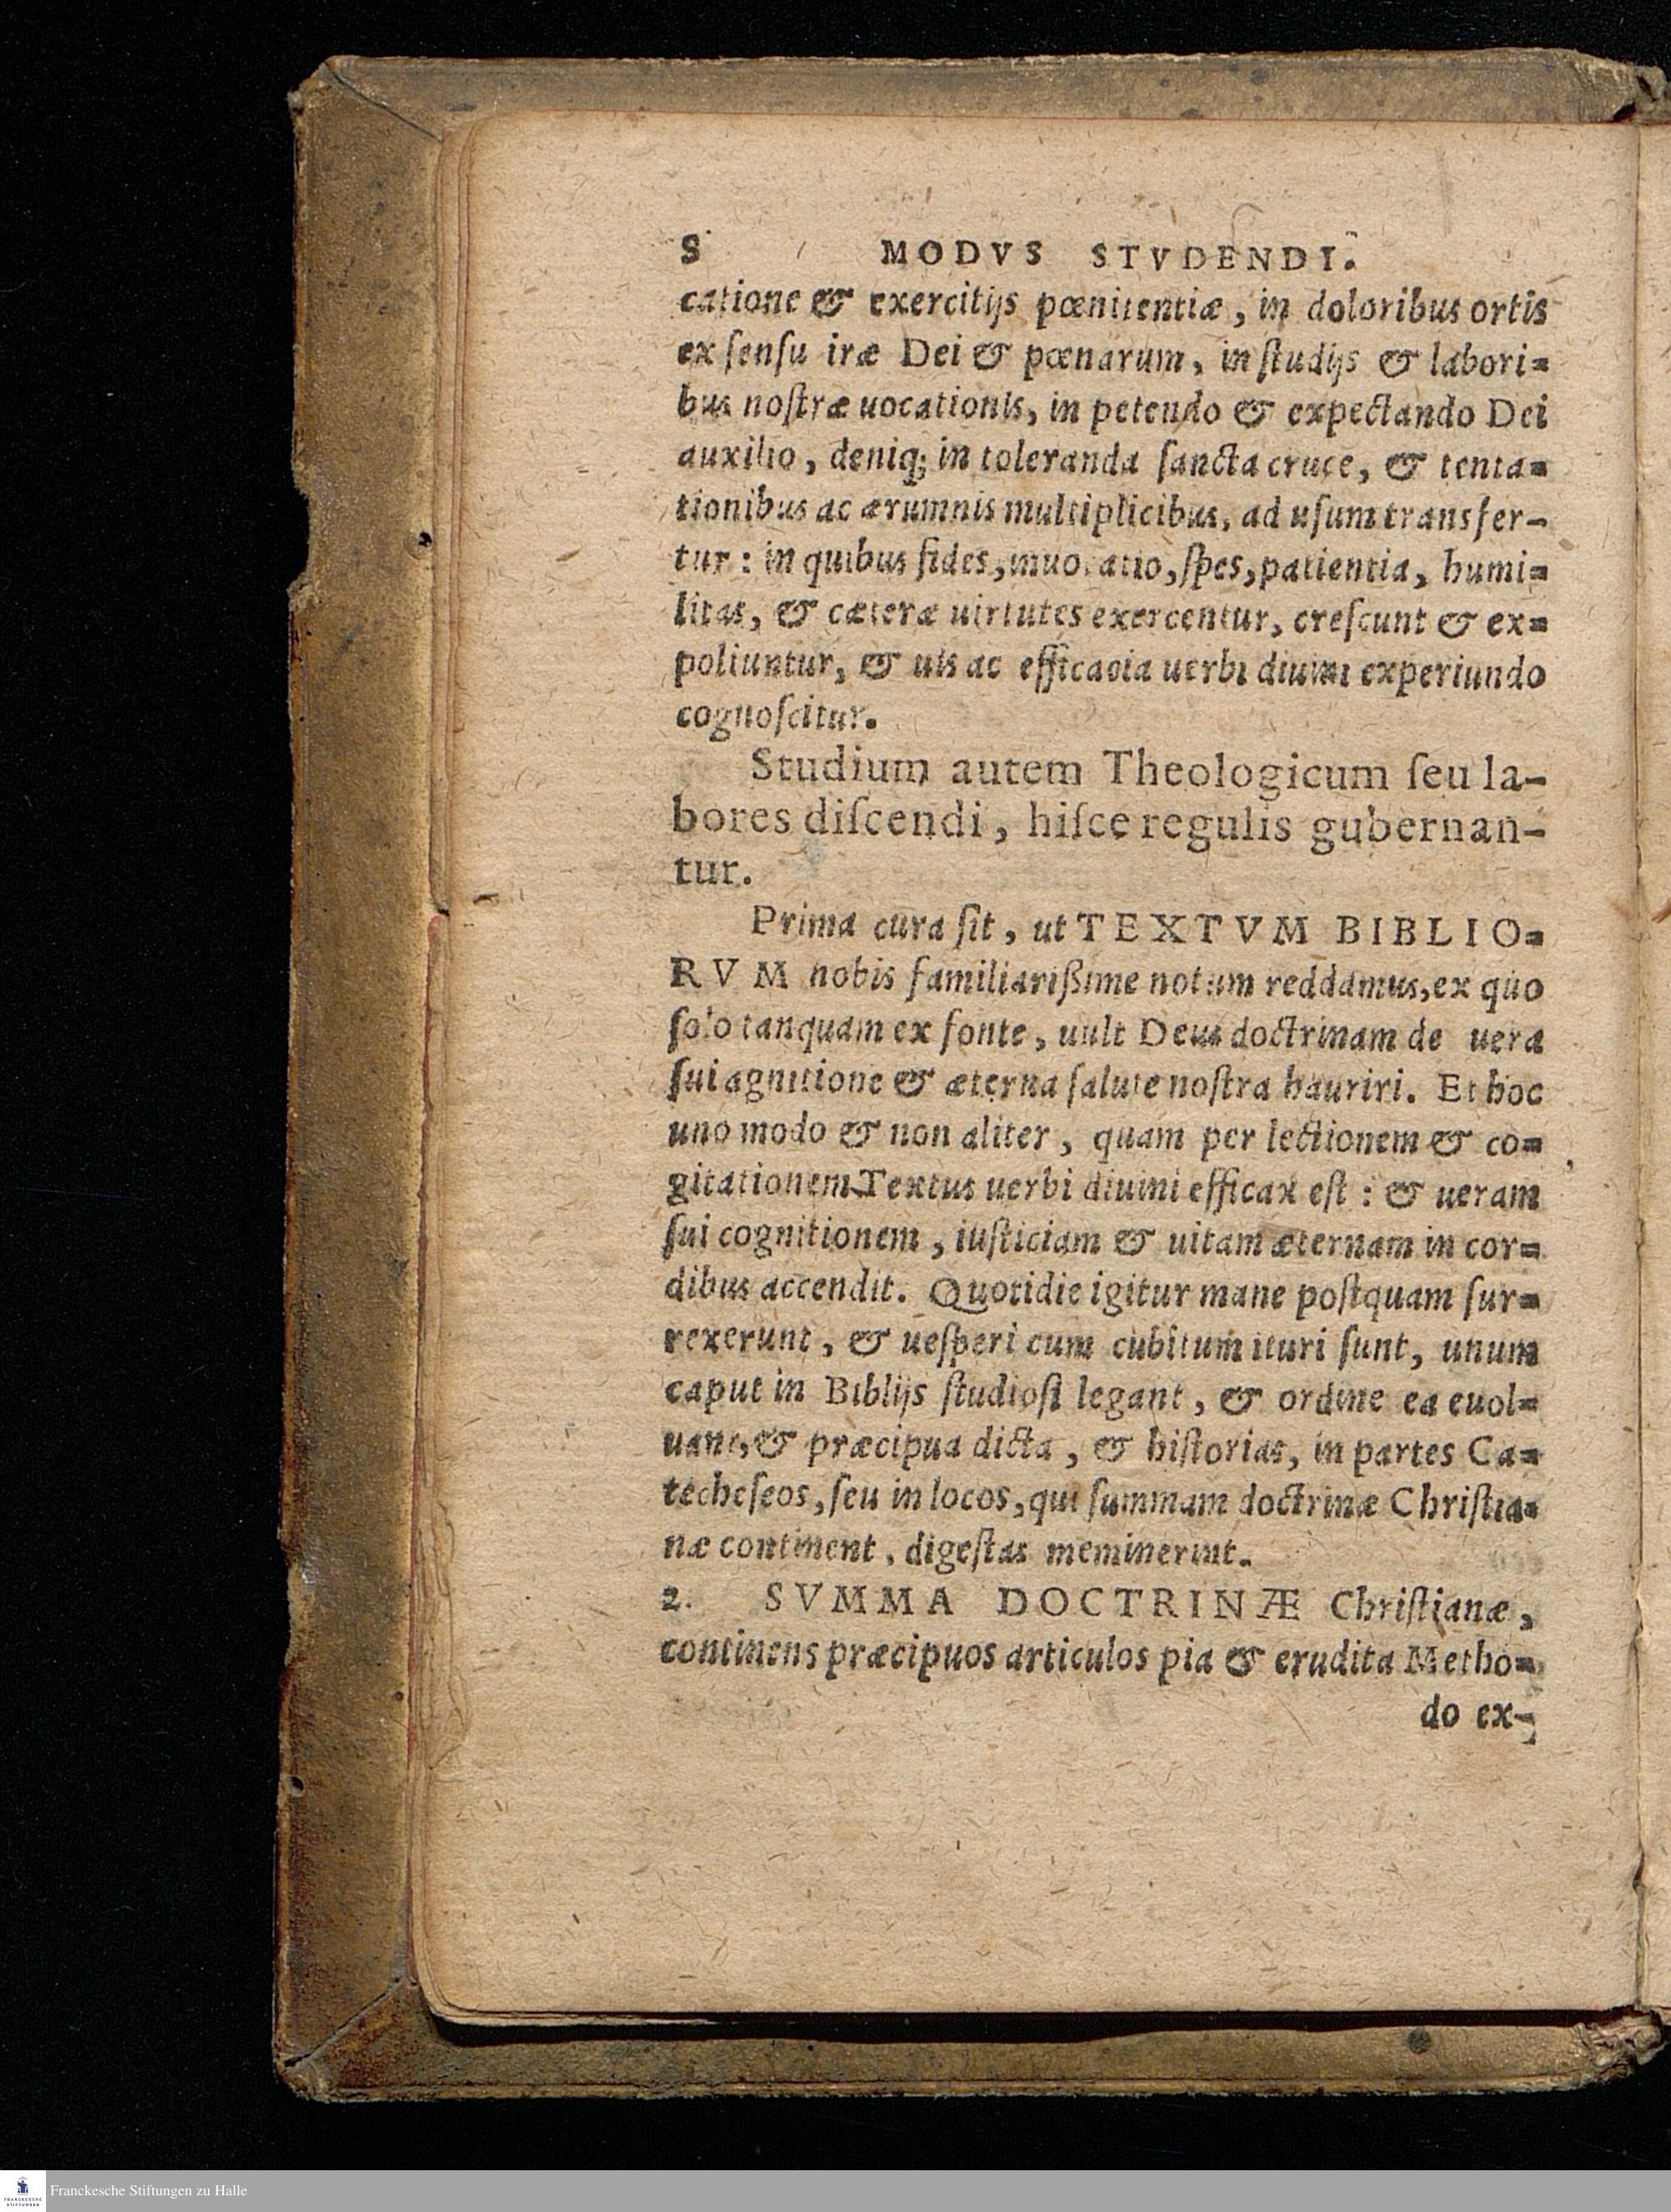 8 MODVS STVDENDI.
catione & exercitijs pœnitentiæ, in doloribus ortis
ex ſenſu iræ Dei & pœnarum, in ſtudijs & labori=
bus noſtræ uocationis, in petendo & expectando Dei
auxilio, deniq; in toleranda ſancta cruce, & tenta=
tionibus ac ærumnis multiplicibus, ad uſum transfer-
tur: in quibus fides, inuocatio, ſpes, patientia, humi=
litas, & cæteræ uirtutes exercentur, creſcunt & ex=
poliuntur, & uis ac efficacia uerbi diuini experiundo
cognoſcitur.
Studium autem Theologicum ſeu la-
bores diſcendi, hiſce regulis gubernan-
tur.
Prima cura ſit, ut TEXTVM BIBLIO=
RVM nobis familiarißime notum reddamus, ex quo
ſolo tanquam ex fonte, uult Deus doctrinam de uera
ſui agnitione & æterna ſalute noſtra hauriri. Et hoc
uno modo & non aliter, quam per lectionem & co=
gitationem Textus uerbi diuini efficax eſt: & ueram
ſui cognitionem, iuſticiam & uitam æternam in cor=
dibus accendit. Quotidie igitur mane poſtquam ſur=
rexerunt, & ueſperi cum cubitum ituri ſunt, unum
caput in Biblijs ſtudioſi legant, & ordine ea euol=
uant, & præcipua dicta, & hiſtorias, in partes Ca=
techeſeos, ſeu in locos, qui ſummam doctrinæ Chriſtia=
næ continent, digeſtas meminerint.
2. SVMMA DOCTRINÆ Chriſtianæ,
continens præcipuos articulos pia & erudita Metho=
do ex-
Franckesche Stiftungen zu Halle
FRANCKESCHE
STIFTUNGEN